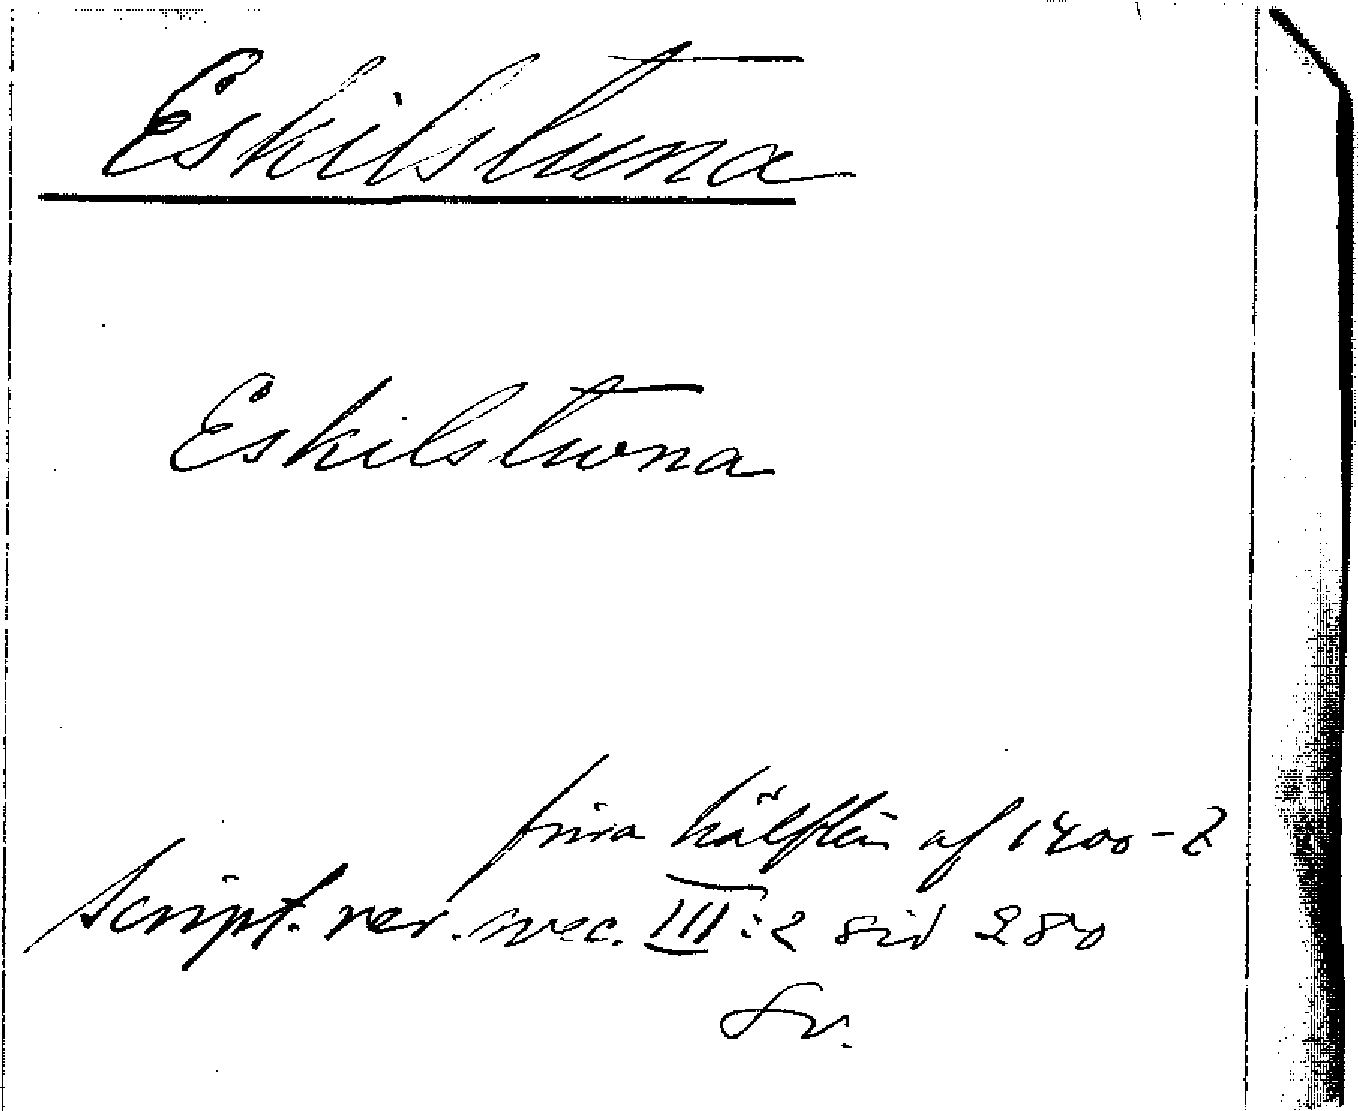 Eskilstuna
Eskilstuna
förra hälften af 1400-t
Script. rer. svec. III:2 sid 280
Sv.